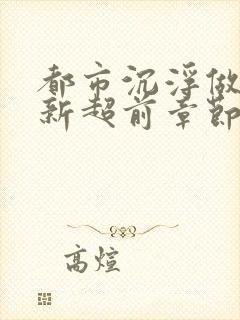 都市沉浮做
新超前章節
高煊